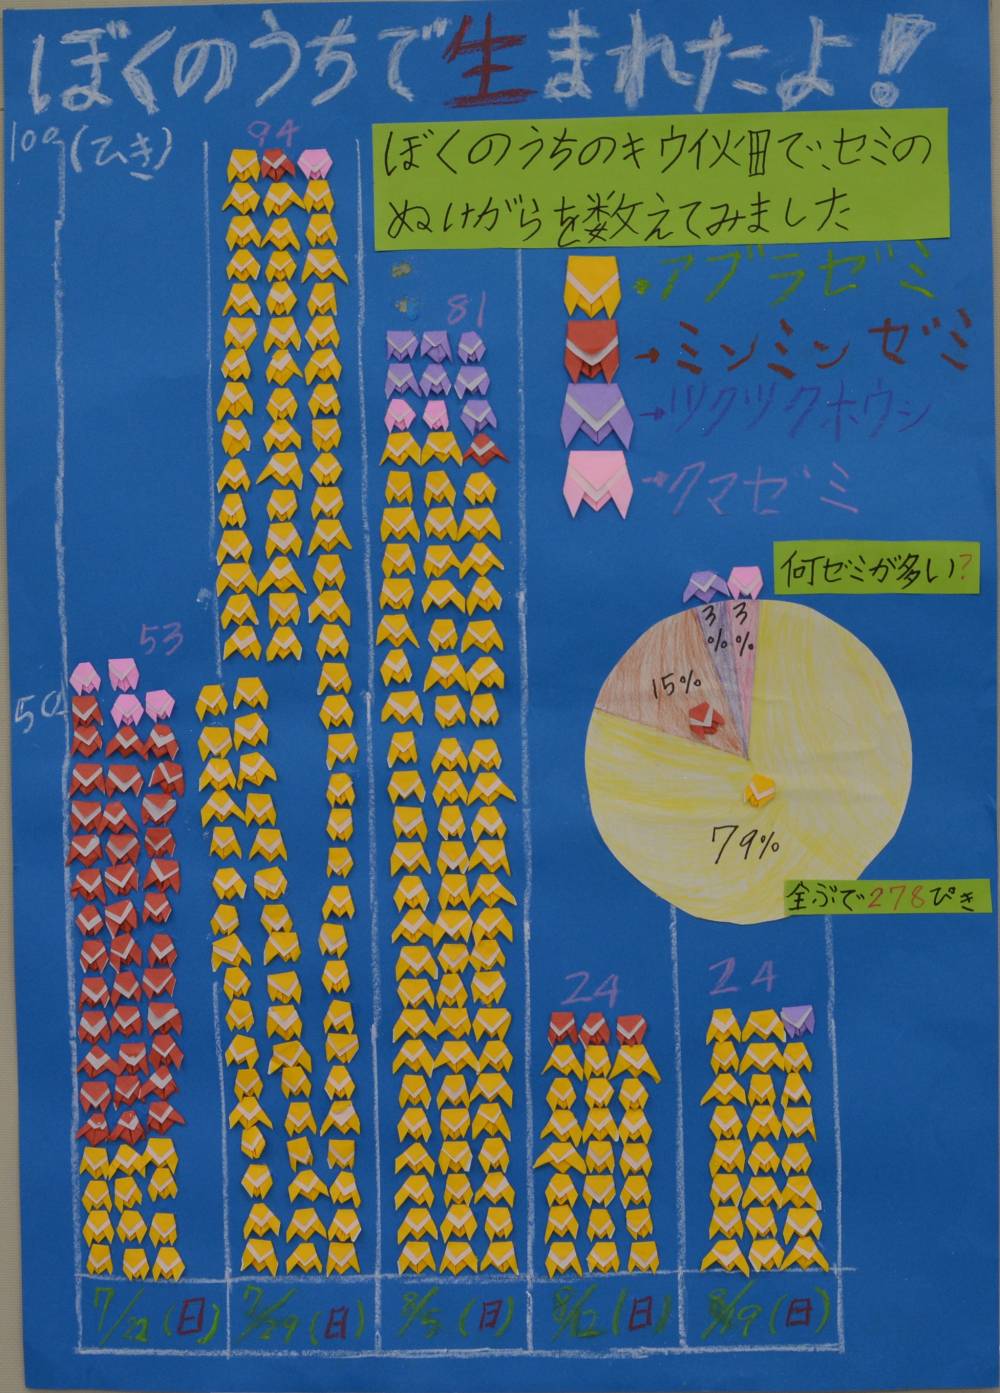 ぼくのうちで生まれたよ!
100
(ひき)
94
ぼくのうちのキウイ畑で、セミの
ぬけがらを数えてみました
→アブラゼミ
81
→ミンミンゼミ
→ツクツクホウシ
→クマゼミ
何ゼミが多い?
3% 3%
15%
79%
全ぶで278ぴき
53
50
24
24
7/22(日) 7/29(日) 8/5(日) 8/12(日) 8/19(日)